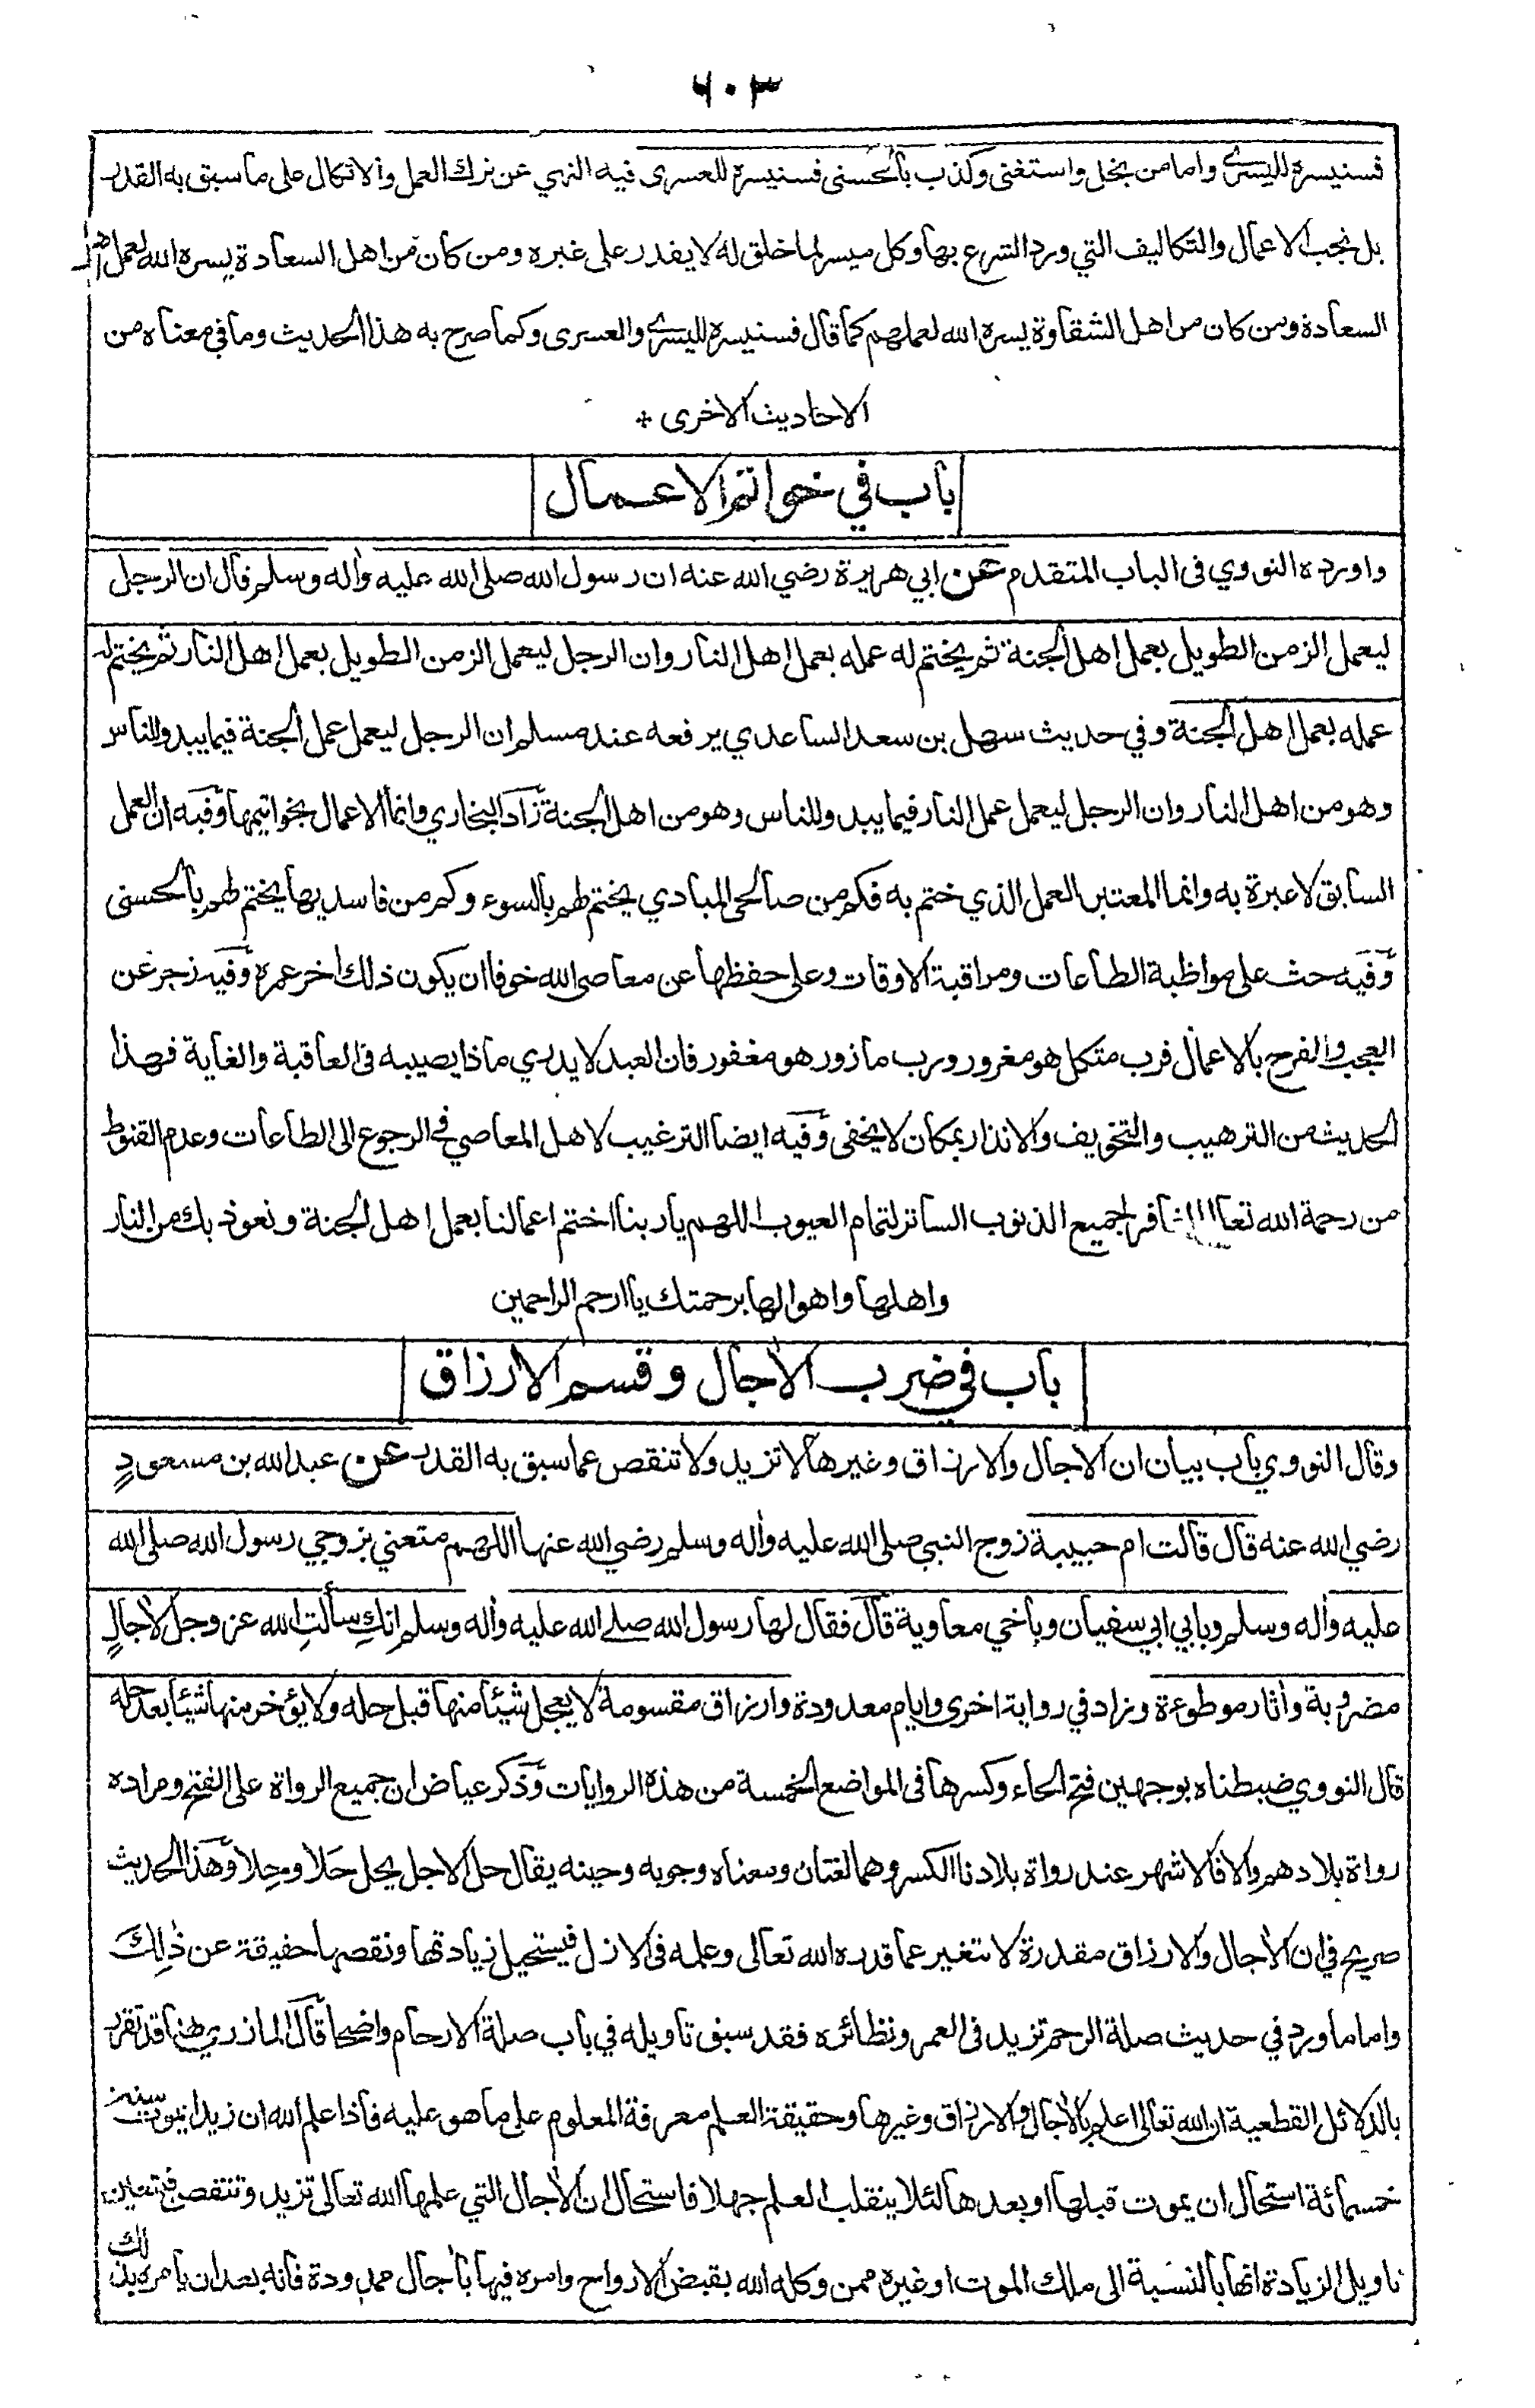 ٦٠٣
فسنيسره لليسرى واما من بخل واستغنى وكذب بالحسنى فسنيسره للعسرى فيه النهي عن ترك العمل والاتكال على ما سبق به القدر
بل نجب الاعمال والتكاليف التي ورد الشرع بها وكل ميسر لما خلق له لا يقدر على غيره ومن كان من اهل السعادة يسره الله لعمل اهل
السعادة ومن كان من اهل الشقاوة يسره الله لعملهم كما قال فسنيسره لليسرى والعسرى وكما صرح به هذا الحديث وما في معناه من
الاحاديث الاخرى *
باب في خواتم الاعمال
واورده النووي في الباب المتقدم عن ابي هريرة رضي الله عنه ان رسول الله صلى الله عليه واٰله وسلم قال ان الرجل
ليعمل الزمن الطويل بعمل اهل الجنة ثم يختم له عمله بعمل اهل النار وان الرجل ليعمل الزمن الطويل بعمل اهل النار ثم يختم له
عمله بعمل اهل الجنة وفي حديث سهل بن سعد الساعدي يرفعه عند مسلم ان الرجل ليعمل عمل الجنة فيما يبدو للناس
وهو من اهل النار وان الرجل ليعمل عمل النار فيما يبدو للناس وهو من اهل الجنة زاد البخاري وانما الاعمال بخواتيمها وفيه ان العمل
السابق لا عبرة به وانما المعتبر العمل الذي ختم به فكم من صالحى المبادي يختم لهم بالسوء وكم من فاسديها يختم لهم بالحسنى
وفيه حث على مواظبة الطاعات ومراقبة الاوقات وعلى حفظها عن معاصى الله خوفا ان يكون ذلك اخر عمره وفيه زجر عن
العجب والفرح بالاعمال فرب متكل هو مغرور ورب مازور هو مغفور فان العبد لا يدري ماذا يصيبه فى العاقبة والغاية فهذا
الحديث من الترهيب والتخويف والانذار بمكان لا يخفى وفيه ايضا الترغيب لاهل المعاصي في الرجوع الى الطاعات وعدم القنوط
من رحمة الله تعالى الغافر لجميع الذنوب الساتر لتمام العيوب اللهم يا ربنا اختم اعمالنا بعمل اهل الجنة ونعوذ بك من النار
واهلها واهوالها برحمتك يا ارحم الراحمين
باب في ضرب الاٰجال وقسم الارزاق
وقال النووي باب بيان ان الاٰجال والارزاق وغيرها لا تزيد ولا تنقص عما سبق به القدر عن عبد الله بن مسعودٍ
رضي الله عنه قال قالت ام حبيبة زوج النبي صلى الله عليه واٰله وسلم رضي الله عنها اللهم متعني بزوجي رسول الله صلى الله
عليه واٰله وسلم وبابي ابي سفيان وباخي معاوية قال فقال لها رسول الله صلى الله عليه واٰله وسلم انكِ سألتِ الله عز وجل لاٰجالٍ
مضروبة واٰثار موطوءة وزاد في رواية اخرى وايام معدودة وارزاق مقسومة لا يعجل شيئا منها قبل حله ولا يؤخر منها شيئا بعد حله
قال النووي ضبطناه بوجهين فتح الحاء وكسرها فى المواضع الخمسة من هذه الروايات وذكر عياض ان جميع الرواة على الفتح ومراده
رواة بلادهم والا فالاشهر عند رواة بلادنا الكسر وهما لغتان ومعناه وجوبه وحينه يقال حل الاجل يحل حَلا وحِلا وهذا الحديث
صريح في ان الاٰجال والارزاق مقدرة لا تتغير عما قدره الله تعالى وعلمه فى الازل فيستحيل زيادتها ونقصها حقيقة عن ذٰلِكَ
واما ما ورد في حديث صلة الرحم تزيد فى العمر ونظائره فقد سبق تاويله في باب صلة الارحام واضحا قال المازري هنا قد تقرر
بالدلائل القطعية ان الله تعالى اعلم بالاٰجال والارزاق وغيرها وحقيقة العلم معرفة المعلوم على ما هو عليه فاذا علم الله ان زيدا يموت سنة
خمسمائة استحال ان يموت قبلها او بعدها لئلا ينقلب العلم جهلا فاستحال ان الاٰجال التي علمها الله تعالى تزيد وتنقص فيتعين
تاويل الزيادة انها بالنسبة الى ملك الموت او غيره ممن وكله الله بقبض الارواح وامره فيها باٰجال ممدودة فانه بعد ان يامره بذلك